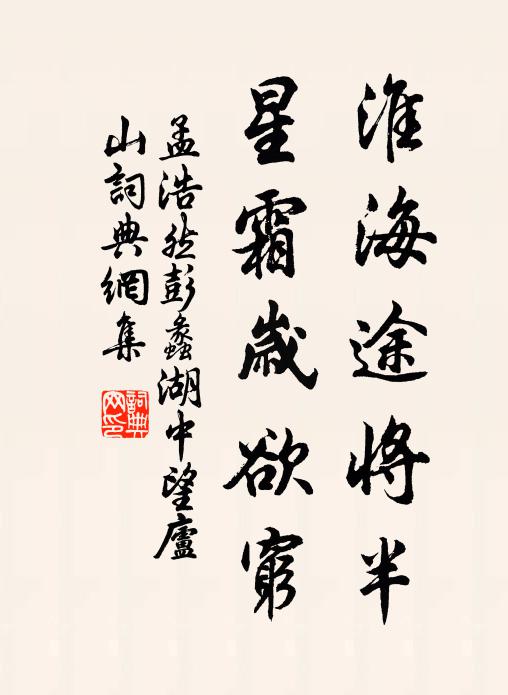 淮海途将半
星霜歲欲窮
孟浩然彭蠡湖中望廬
山詞典網集
詞典網印